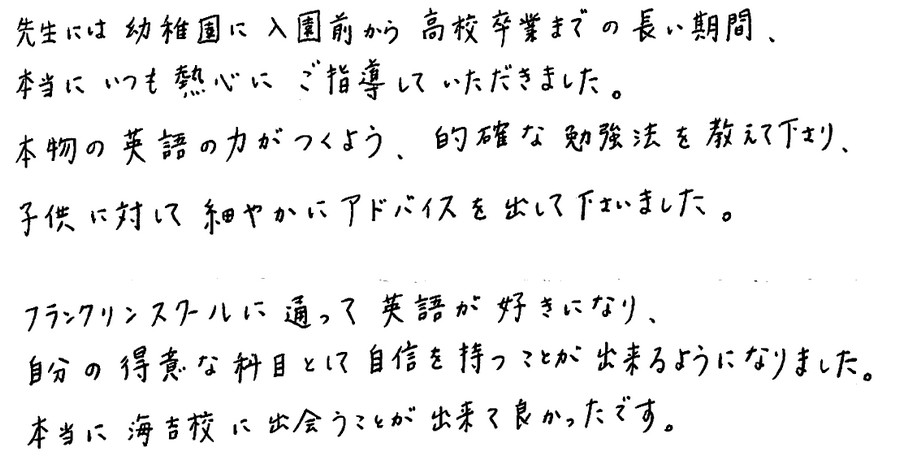 先生には幼稚園に入園前から高校卒業までの長い期間、
本当にいつも熱心にご指導していただきました。
本物の英語の力がつくよう、的確な勉強法を教えて下さり、
子供に対して細やかにアドバイスを出して下さいました。
フランクリンスクールに通って英語が好きになり、
自分の得意な科目として自信を持つことが出来るようになりました。
本当に海吉校に出会うことが出来て良かったです。